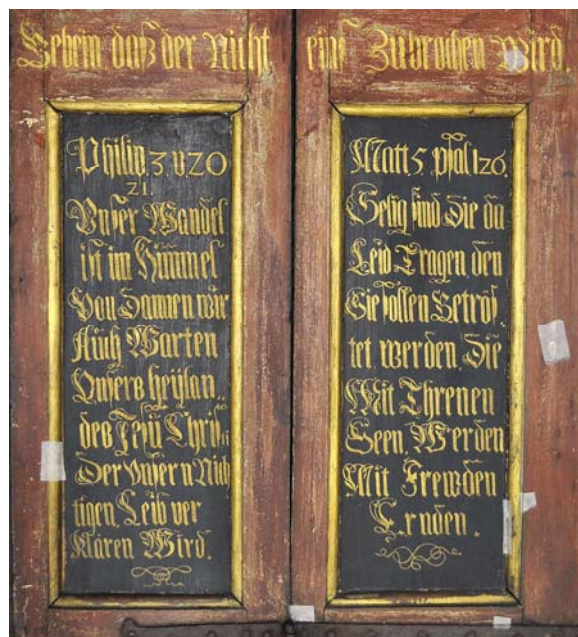 Gebein daß der Nicht eins Zubrochen Wird.
Philip 3 v 20
21.
Unser Wandel
ist im Himmel
Von Dannen wir
Auch Warten
Unsers heÿlan
des Jesu Christi
Der Unsern Nich
tigen Leib ver
Klären Wird.
Matt 5 psal 126.
Selig sind Die da
Leid Tragen den
Sie sollen Getrös
tet werden. Die
Mit Threnen
Seen, Werden
Mit Frewden
Ernden.